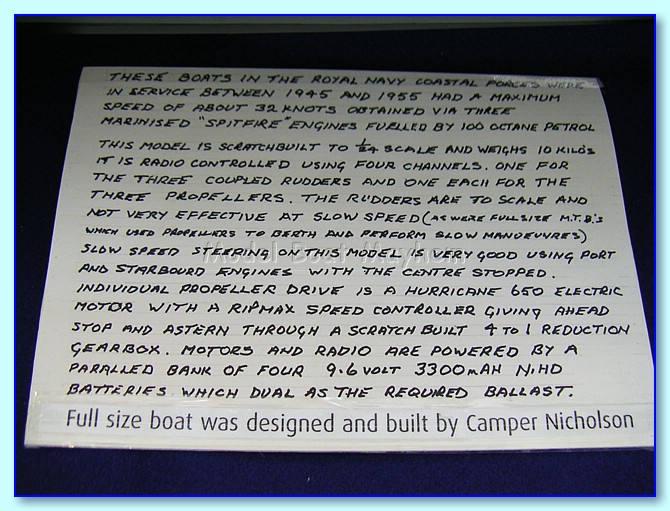 THESE BOATS IN THE ROYAL NAVY COASTAL FORCES WERE
IN SERVICE BETWEEN 1945 AND 1955 HAD A MAXIMUM
SPEED OF ABOUT 32 KNOTS OBTAINED VIA THREE
MARINISED "SPITFIRE" ENGINES FUELLED BY 100 OCTANE PETROL
THIS MODEL IS SCRATCHBUILT TO 1/24 SCALE AND WEIGHS 10 KILO'S
IT IS RADIO CONTROLLED USING FOUR CHANNELS. ONE FOR
THE THREE COUPLED RUDDERS AND ONE EACH FOR THE
THREE PROPELLERS. THE RUDDERS ARE TO SCALE AND
NOT VERY EFFECTIVE AT SLOW SPEED (AS WERE FULL SIZE M.T.B.'S
WHICH USED PROPELLERS TO BERTH AND PERFORM SLOW MANOEUVRES)
Model Boat Mayhem
SLOW SPEED STEERING ON THIS MODEL IS VERY GOOD USING PORT
AND STARBOURD ENGINES WITH THE CENTRE STOPPED.
INDIVIDUAL PROPELLER DRIVE IS A HURRICANE 650 ELECTRIC
MOTOR WITH A RIPMAX SPEED CONTROLLER GIVING AHEAD
STOP AND ASTERN THROUGH A SCRATCH BUILT 4 TO 1 REDUCTION
GEARBOX. MOTORS AND RADIO ARE POWERED BY A
PARALLED BANK OF FOUR 9.6 VOLT 3300 MAH NIHD
BATTERIES WHICH DUAL AS THE REQUIRED BALLAST.
Full size boat was designed and built by Camper Nicholson